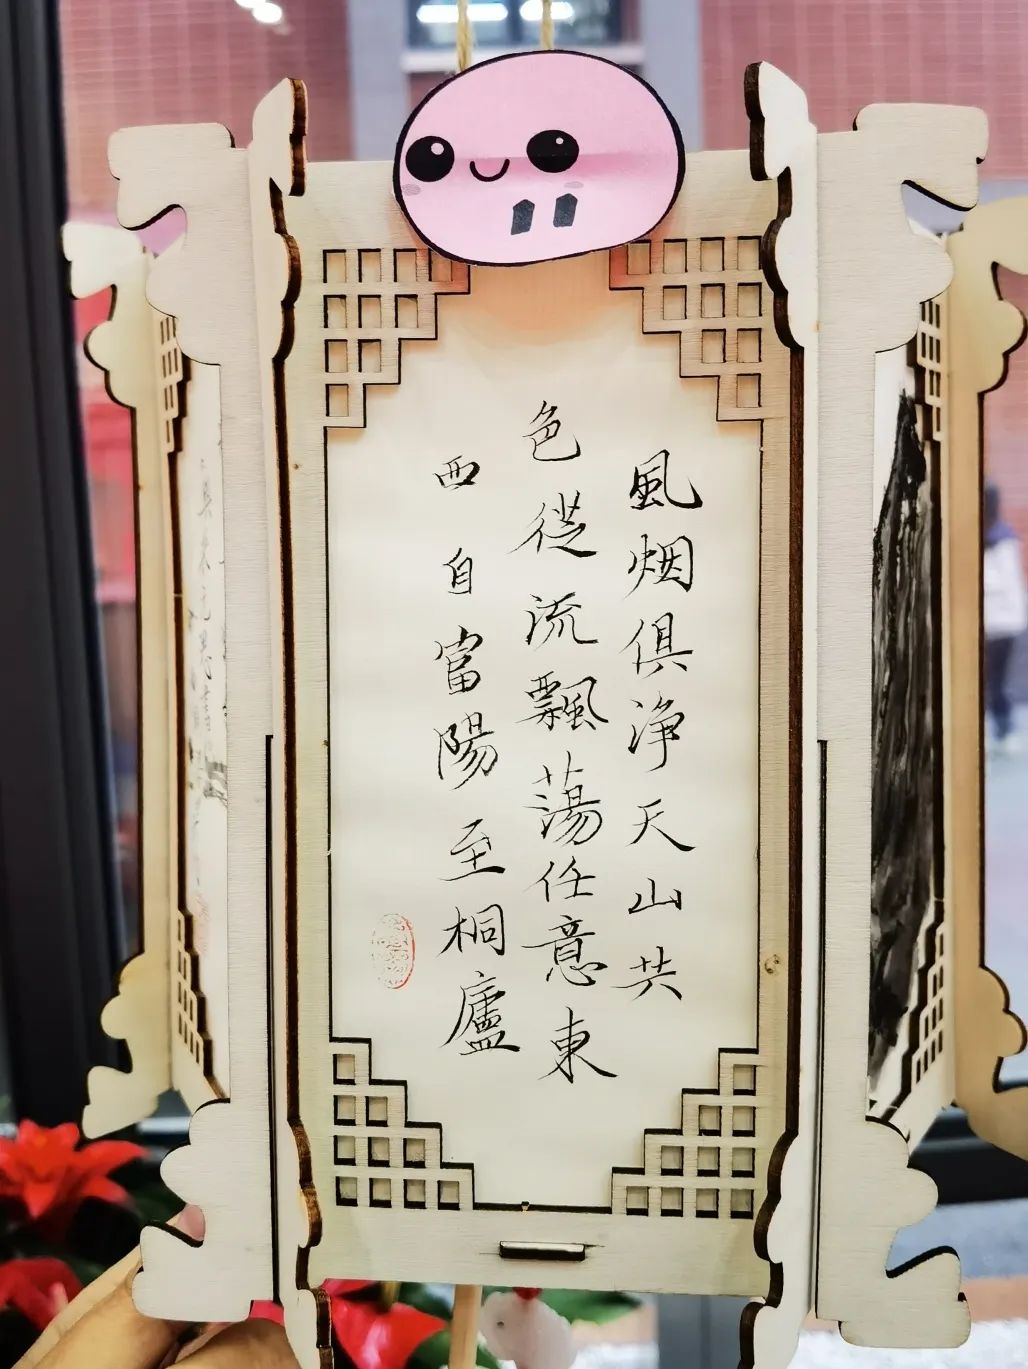 風烟俱浄天山共
色從流飄蕩任意東
西自富陽至桐廬